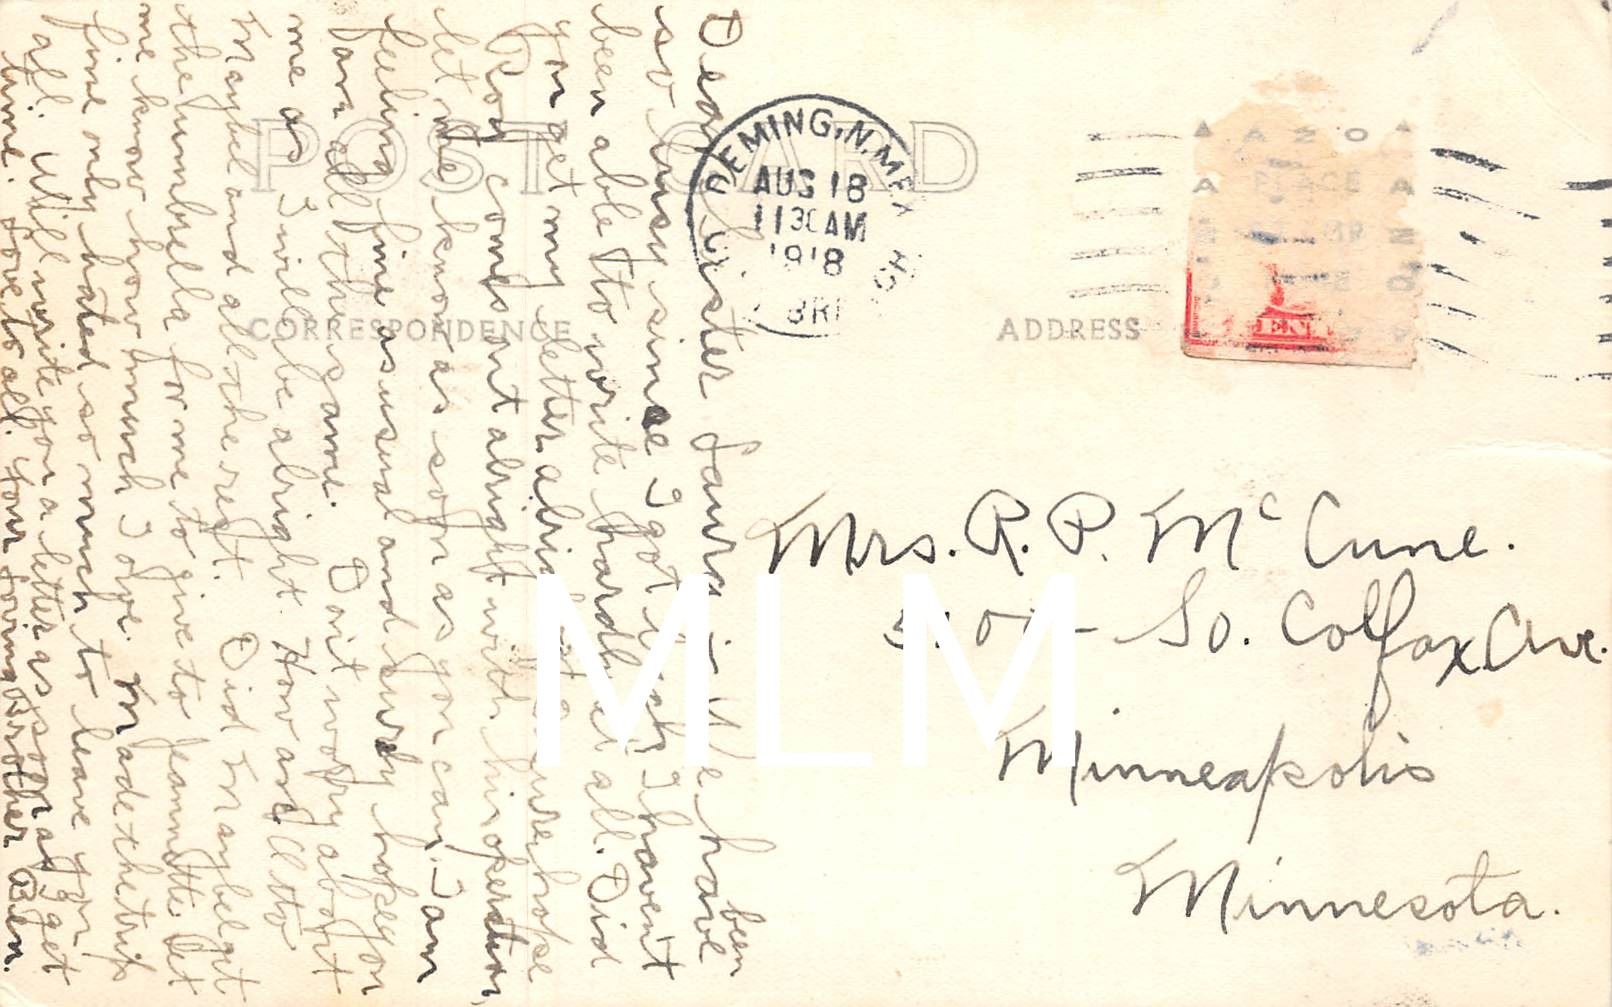 POST CARD
CORRESPONDENCE
ADDRESS
DEMING, N. MEX
AUG 18
1130 AM
1918
BR
AZO
PLACE
CEN
Dear Sister Laura: We have been
so busy since I got back I haven't
been able to write hardly at all. Did
you get my letter alright. I sure hope
Roy comes out alright with his operation,
let me know as soon as you can. I am
feeling fine as usual and surely hope you
are all the same. Don't worry about
me as I will be alright. How are
Maybel and all the rest. Did Maybel get
the umbrella for me to give to Jeannette let
me know how much I owe. Made the trip
fine only hated so much to leave you
all. Will write you a letter as soon as I get
time. Love to all. Your Loving Brother Ben.
Mrs. R. P. McCune.
So. Colfax Ave.
Minneapolis
Minnesota.
MLM